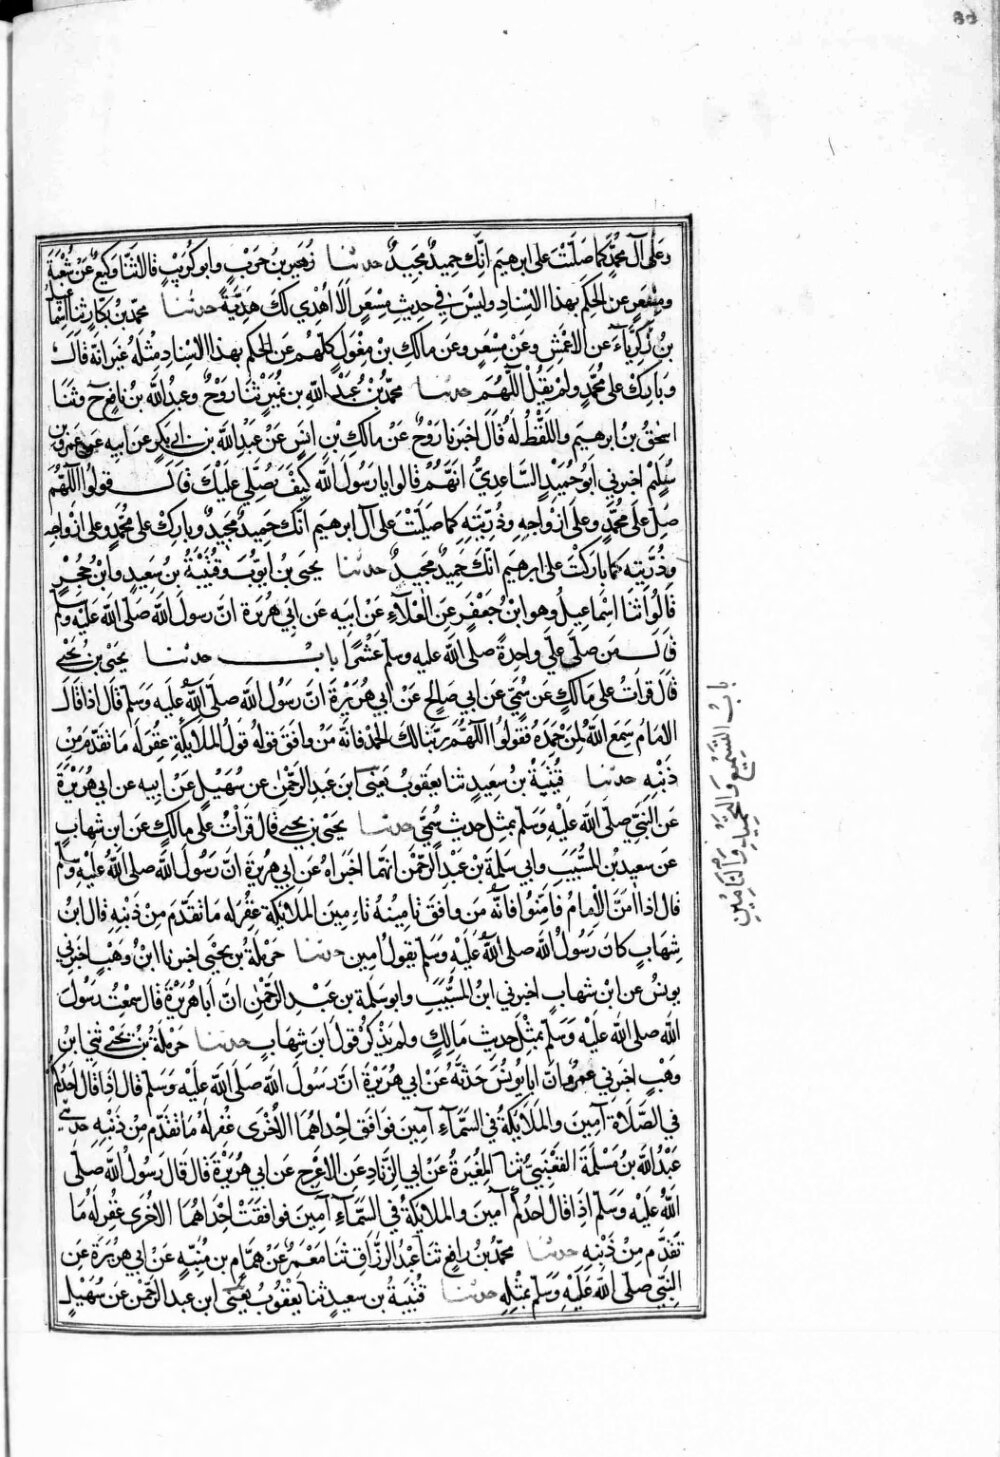 وعلى آل محمد كما صليت على ابرهيم انك حميد مجيد حدثنا زهير بن حرب وابو كريب قالا ثنا وكيع عن شعبة
ومسعر عن الحكم بهذا الاسناد وليس في حديث مسعر الا اهدي لك هدية حدثنا محمد بن بكار ثنا اسماعيل
بن زكرياء عن الاعمش وعن مسعر وعن مالك بن مغول كلهم عن الحكم بهذا الاسناد مثله غير انه قال
وبارك على محمد ولم يقل اللهم حدثنا محمد بن عبد الله بن نمير ثنا روح وعبد الله بن نافع ح وثنا
اسحق بن ابرهيم واللفظ له قال اخبرنا روح عن مالك بن انس عن عبد الله بن ابي بكر عن ابيه عن عمرو بن
سليم اخبرني ابو حميد الساعدي انهم قالوا يا رسول الله كيف نصلي عليك قال قولوا اللهم
صل على محمد وعلى ازواجه وذريته كما صليت على آل ابرهيم انك حميد مجيد وبارك على محمد وعلى ازواجه
وذريته كما باركت على ابرهيم انك حميد مجيد حدثنا يحيى بن ايوب وقتيبة بن سعيد وابن حجر
قالوا ثنا اسماعيل وهو ابن جعفر عن العلاء عن ابيه عن ابي هريرة ان رسول الله صلى الله عليه وسلم
قال من صلى علي واحدة صلى الله عليه وسلم عشرا باب حدثنا يحيى بن يحيى
قال قرات على مالك عن سمي عن ابي صالح عن ابي هريرة ان رسول الله صلى الله عليه وسلم قال اذا قال
الامام سمع الله لمن حمده فقولوا اللهم ربنا لك الحمد فانه من وافق قوله قول الملايكة غفر له ما تقدم من
ذنبه حدثنا قتيبة بن سعيد ثنا يعقوب يعني ابن عبد الرحمن عن سهيل عن ابيه عن ابي هريرة
عن النبي صلى الله عليه وسلم بمثل حديث سمي حدثنا يحيى بن يحيى قال قرات على مالك عن ابن شهاب
عن سعيد بن المسيب وابي سلمة بن عبد الرحمن انهما اخبراه عن ابي هريرة ان رسول الله صلى الله عليه وسلم
قال اذا امن الامام فامنوا فانه من وافق تامينه تامين الملايكة غفر له ما تقدم من ذنبه قال ابن
شهاب كان رسول الله صلى الله عليه وسلم يقول امين حدثنا حرملة بن يحيى اخبرنا ابن وهب اخبرني
يونس عن ابن شهاب اخبرني ابن المسيب وابو سلمة بن عبد الرحمن ان ابا هريرة قال سمعت رسول
الله صلى الله عليه وسلم بمثل حديث مالك ولم يذكر قول ابن شهاب حدثنا حرملة بن يحيى ثني ابن
وهب اخبرني عمرو ان ابا يونس حدثه عن ابي هريرة ان رسول الله صلى الله عليه وسلم قال اذا قال احدكم
في الصلاة آمين والملايكة في السماء آمين فوافق احداهما الاخرى غفر له ما تقدم من ذنبه حدثني
عبد الله بن مسلمة القعنبي ثنا المغيرة عن ابي الزناد عن الاعرج عن ابي هريرة قال قال رسول الله صلى
الله عليه وسلم اذا قال احدكم آمين والملايكة في السماء آمين فوافقت احداهما الاخرى غفر له ما
تقدم من ذنبه حدثنا محمد بن رافع ثنا عبد الرزاق ثنا معمر عن همام بن منبه عن ابي هريرة عن
النبي صلى الله عليه وسلم بمثله حدثنا قتيبة بن سعيد ثنا يعقوب يعني ابن عبد الرحمن عن سهيل
باب التسميع والتحميد والتامين